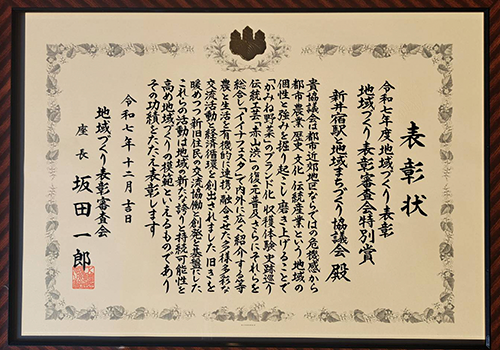 表彰状
令和七年度地域づくり表彰
地域づくり表彰審査会特別賞
新井宿駅と地域まちづくり協議会 殿
貴協議会は都市近郊地区ならではの危機感から
都市 農業 歴史 文化 伝統産業という地域の
個性と強みを掘り起こし磨き上げることで
「かみね野菜」のブランド化 収穫体験 史跡巡り
伝統工芸「赤山渋」の復元普及さらにそれらを
総合しイイナフェスタで内外に広く紹介する等
農と生活と有機的に連携 融合させた多様多彩な
交流活動と経済循環を創出されました 旧きを
暖めつつ新旧住民の交流協働と創発を基盤にした
これらの活動は地域の新たな誇りと持続可能性と
高め地域づくりの模範といえるものであり
その功績をたたえ表彰します
令和七年十二月吉日
地域づくり表彰審査会
座長 坂田一郎